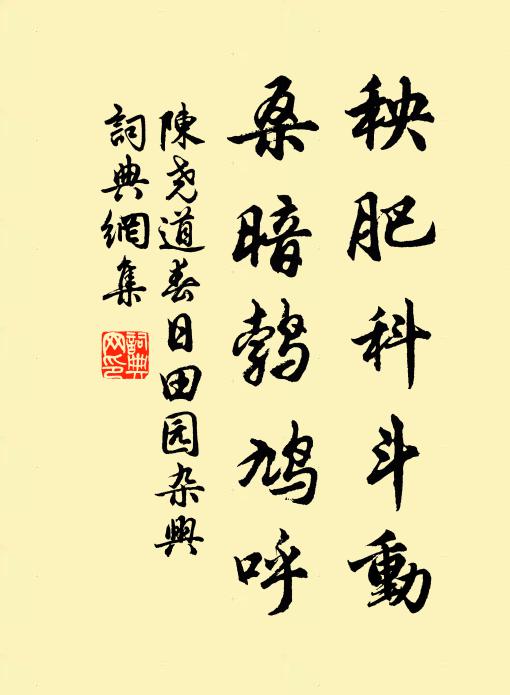 秧肥科斗動
桑暗鵓鳩呼
陳尧道春日田园杂興
詞典網集
詞典网印